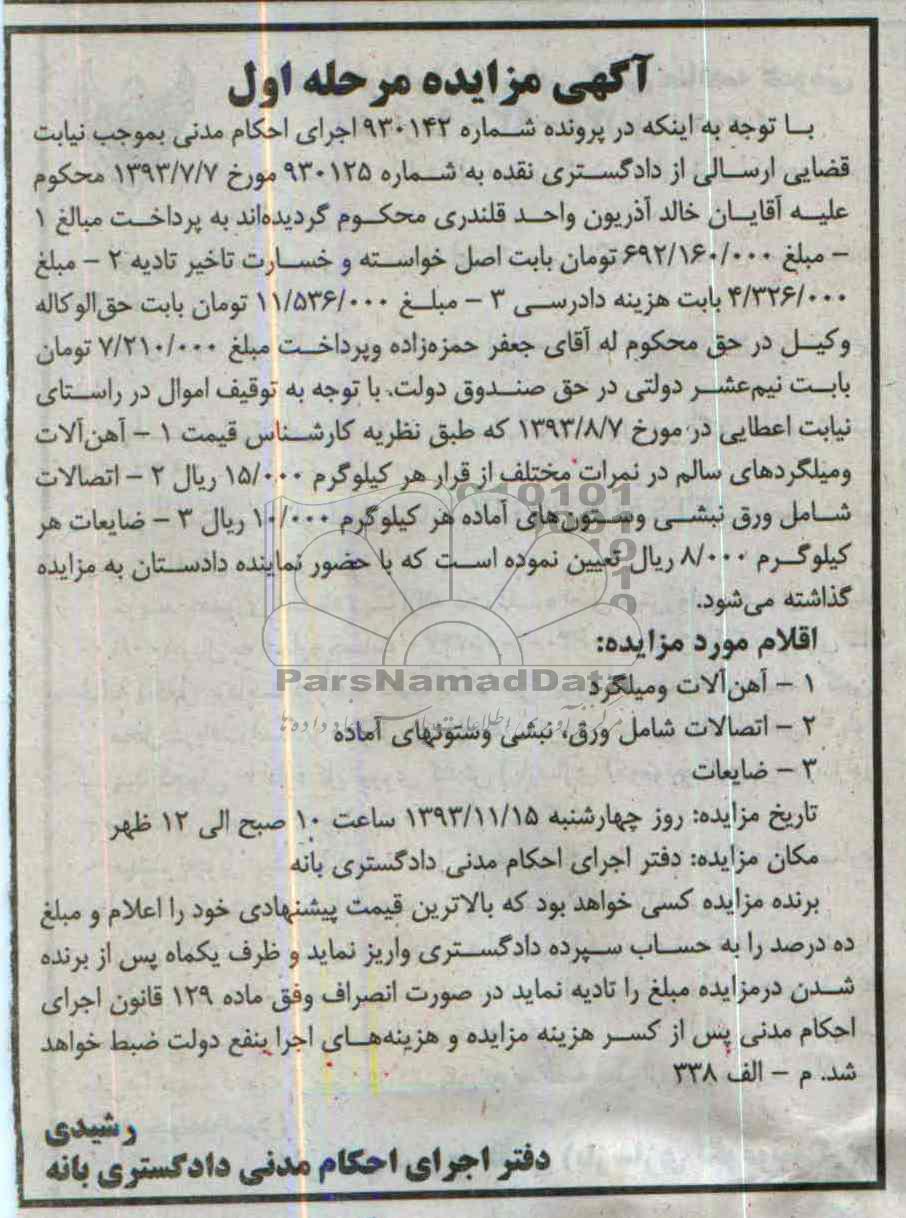 آگهی مزایده مرحله اول
با توجه به اینکه در پرونده شماره ۹۳۰۱۴۲ اجرای احکام مدنی بموجب نیابت
قضایی ارسالی از دادگستری نقده به شماره ۹۳۰۱۲۵ مورخ ۱۳۹۳/۷/۷ محکوم
علیه آقایان خالد آذریون واحد قلندری محکوم گردیده‌اند به پرداخت مبالغ ۱
– مبلغ ۶۹۲/۱۶۰/۰۰۰ تومان بابت اصل خواسته و خسارت تاخیر تادیه ۲ – مبلغ
۴/۳۲۶/۰۰۰ بابت هزینه دادرسی ۳ – مبلغ ۱۱/۵۳۶/۰۰۰ تومان بابت حق‌الوکاله
وکیل در حق محکوم له آقای جعفر حمزه‌زاده وپرداخت مبلغ ۷/۲۱۰/۰۰۰ تومان
بابت نیم‌عشر دولتی در حق صندوق دولت. با توجه به توقیف اموال در راستای
نیابت اعطایی در مورخ ۱۳۹۳/۸/۷ که طبق نظریه کارشناس قیمت ۱ – آهن‌آلات
ومیلگردهای سالم در نمرات مختلف از قرار هر کیلوگرم ۱۵/۰۰۰ ریال ۲ – اتصالات
شامل ورق نبشی وستون‌های آماده هر کیلوگرم ۱۰/۰۰۰ ریال ۳ – ضایعات هر
کیلوگرم ۸/۰۰۰ ریال تعیین نموده است که با حضور نماینده دادستان به مزایده
گذاشته می‌شود.
اقلام مورد مزایده:
۱ – آهن‌آلات ومیلگرد
ParsNamadData
۲ – اتصالات شامل ورق، نبشی وستونهای آماده
۳ – ضایعات
تاریخ مزایده: روز چهارشنبه ۱۳۹۳/۱۱/۱۵ ساعت ۱۰ صبح الی ۱۲ ظهر
مکان مزایده: دفتر اجرای احکام مدنی دادگستری بانه
برنده مزایده کسی خواهد بود که بالاترین قیمت پیشنهادی خود را اعلام و مبلغ
ده درصد را به حساب سپرده دادگستری واریز نماید و ظرف یکماه پس از برنده
شدن درمزایده مبلغ را تادیه نماید در صورت انصراف وفق ماده ۱۲۹ قانون اجرای
احکام مدنی پس از کسر هزینه مزایده و هزینه‌های اجرا بنفع دولت ضبط خواهد
شد. م – الف ۳۳۸
رشیدی
دفتر اجرای احکام مدنی دادگستری بانه